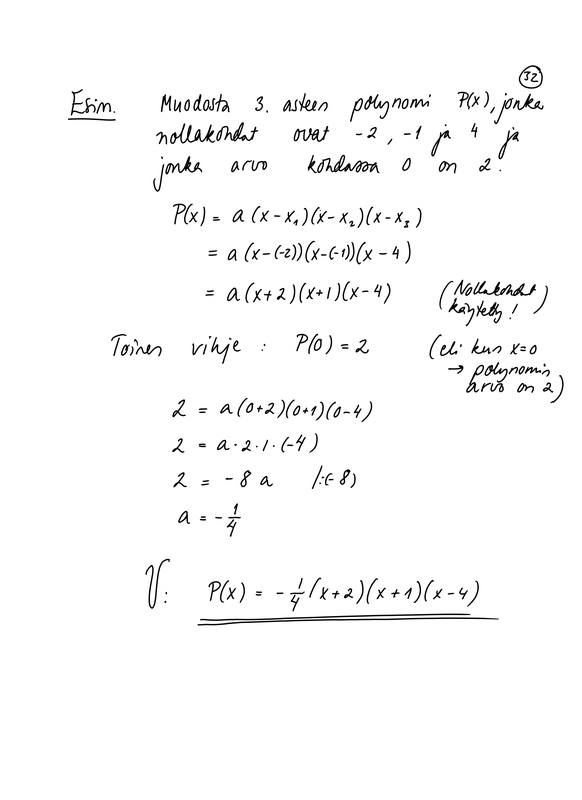 32
Esim. Muodosta 3. asteen polynomi P(x), jonka
nollakohdat ovat -2, -1 ja 4 ja
jonka arvo kohdassa 0 on 2.
P(x) = a(x-x₁)(x-x₂)(x-x₃)
= a(x-(-2))(x-(-1))(x-4)
= a(x+2)(x+1)(x-4) (Nollakohdat
käytetty!)
Toinen vihje : P(0) = 2 (eli kun x=0
→ polynomin
arvo on 2)
2 = a(0+2)(0+1)(0-4)
2 = a·2·1·(-4)
2 = -8a /:(-8)
a = -1/4
V: P(x) = -1/4(x+2)(x+1)(x-4)